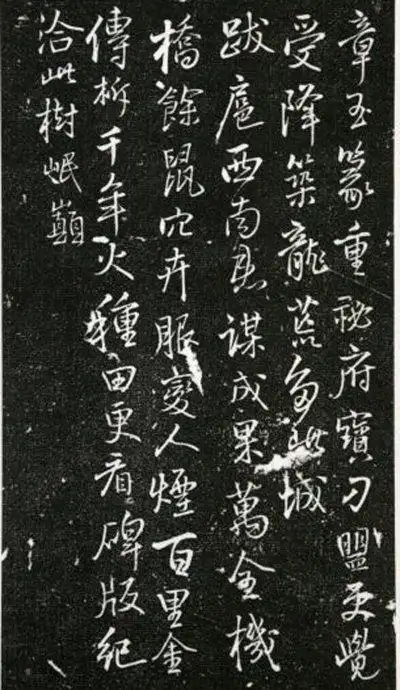 章玉篆重秘府寶刀盟更覺
受降築龍荒多此城
跋扈西南息謀成果萬全機
橋餘鼠穴卉服變人煙百里金
傳柝千年火種田更看碑版紀
洽此樹岷巔